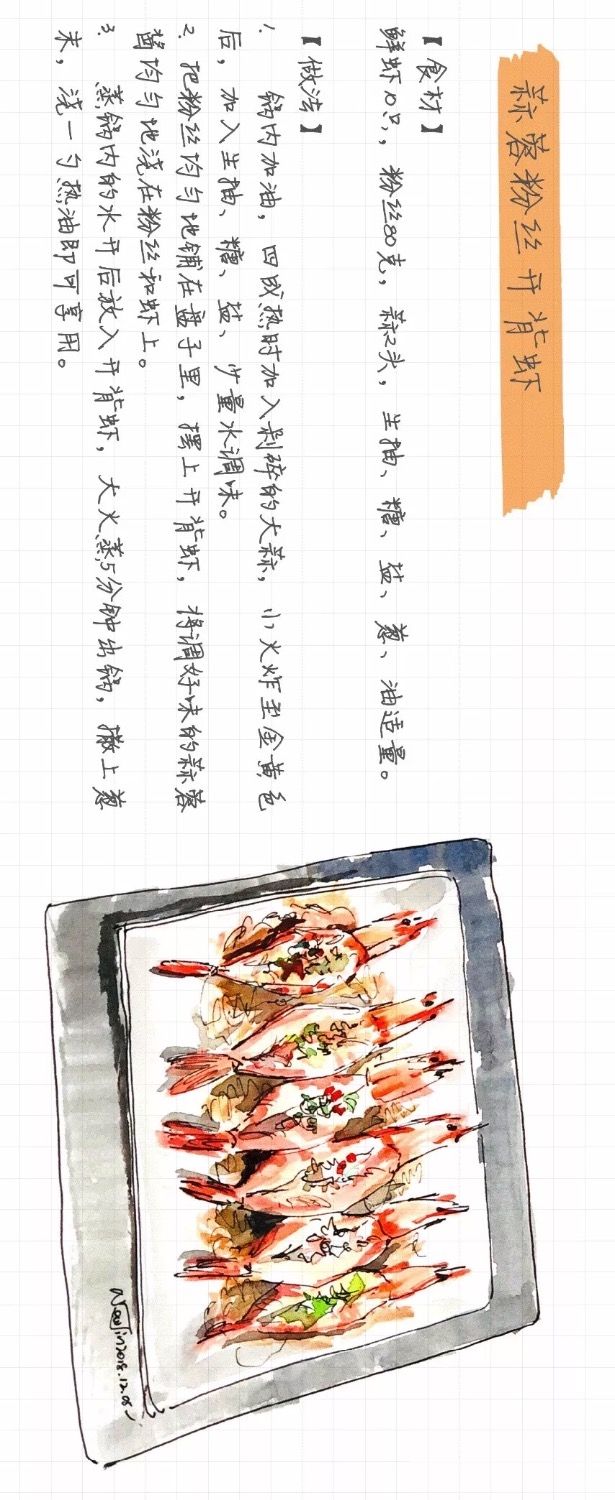 蒜蓉粉丝开背虾
【食材】
鲜虾10只，粉丝80克，蒜2头，生抽、糖、盐、葱、油适量。
【做法】
1. 锅内加油，四成热时加入剁碎的大蒜，小火炸至金黄色
后，加入生抽、糖、盐、少量水调味。
2. 把粉丝均匀地铺在盘子里，摆上开背虾，将调好味的蒜蓉
酱均匀地浇在粉丝和虾上。
3. 蒸锅内的水开后放入开背虾，大火蒸5分钟出锅，撒上葱
末，浇一勺热油即可享用。
2018.12.08